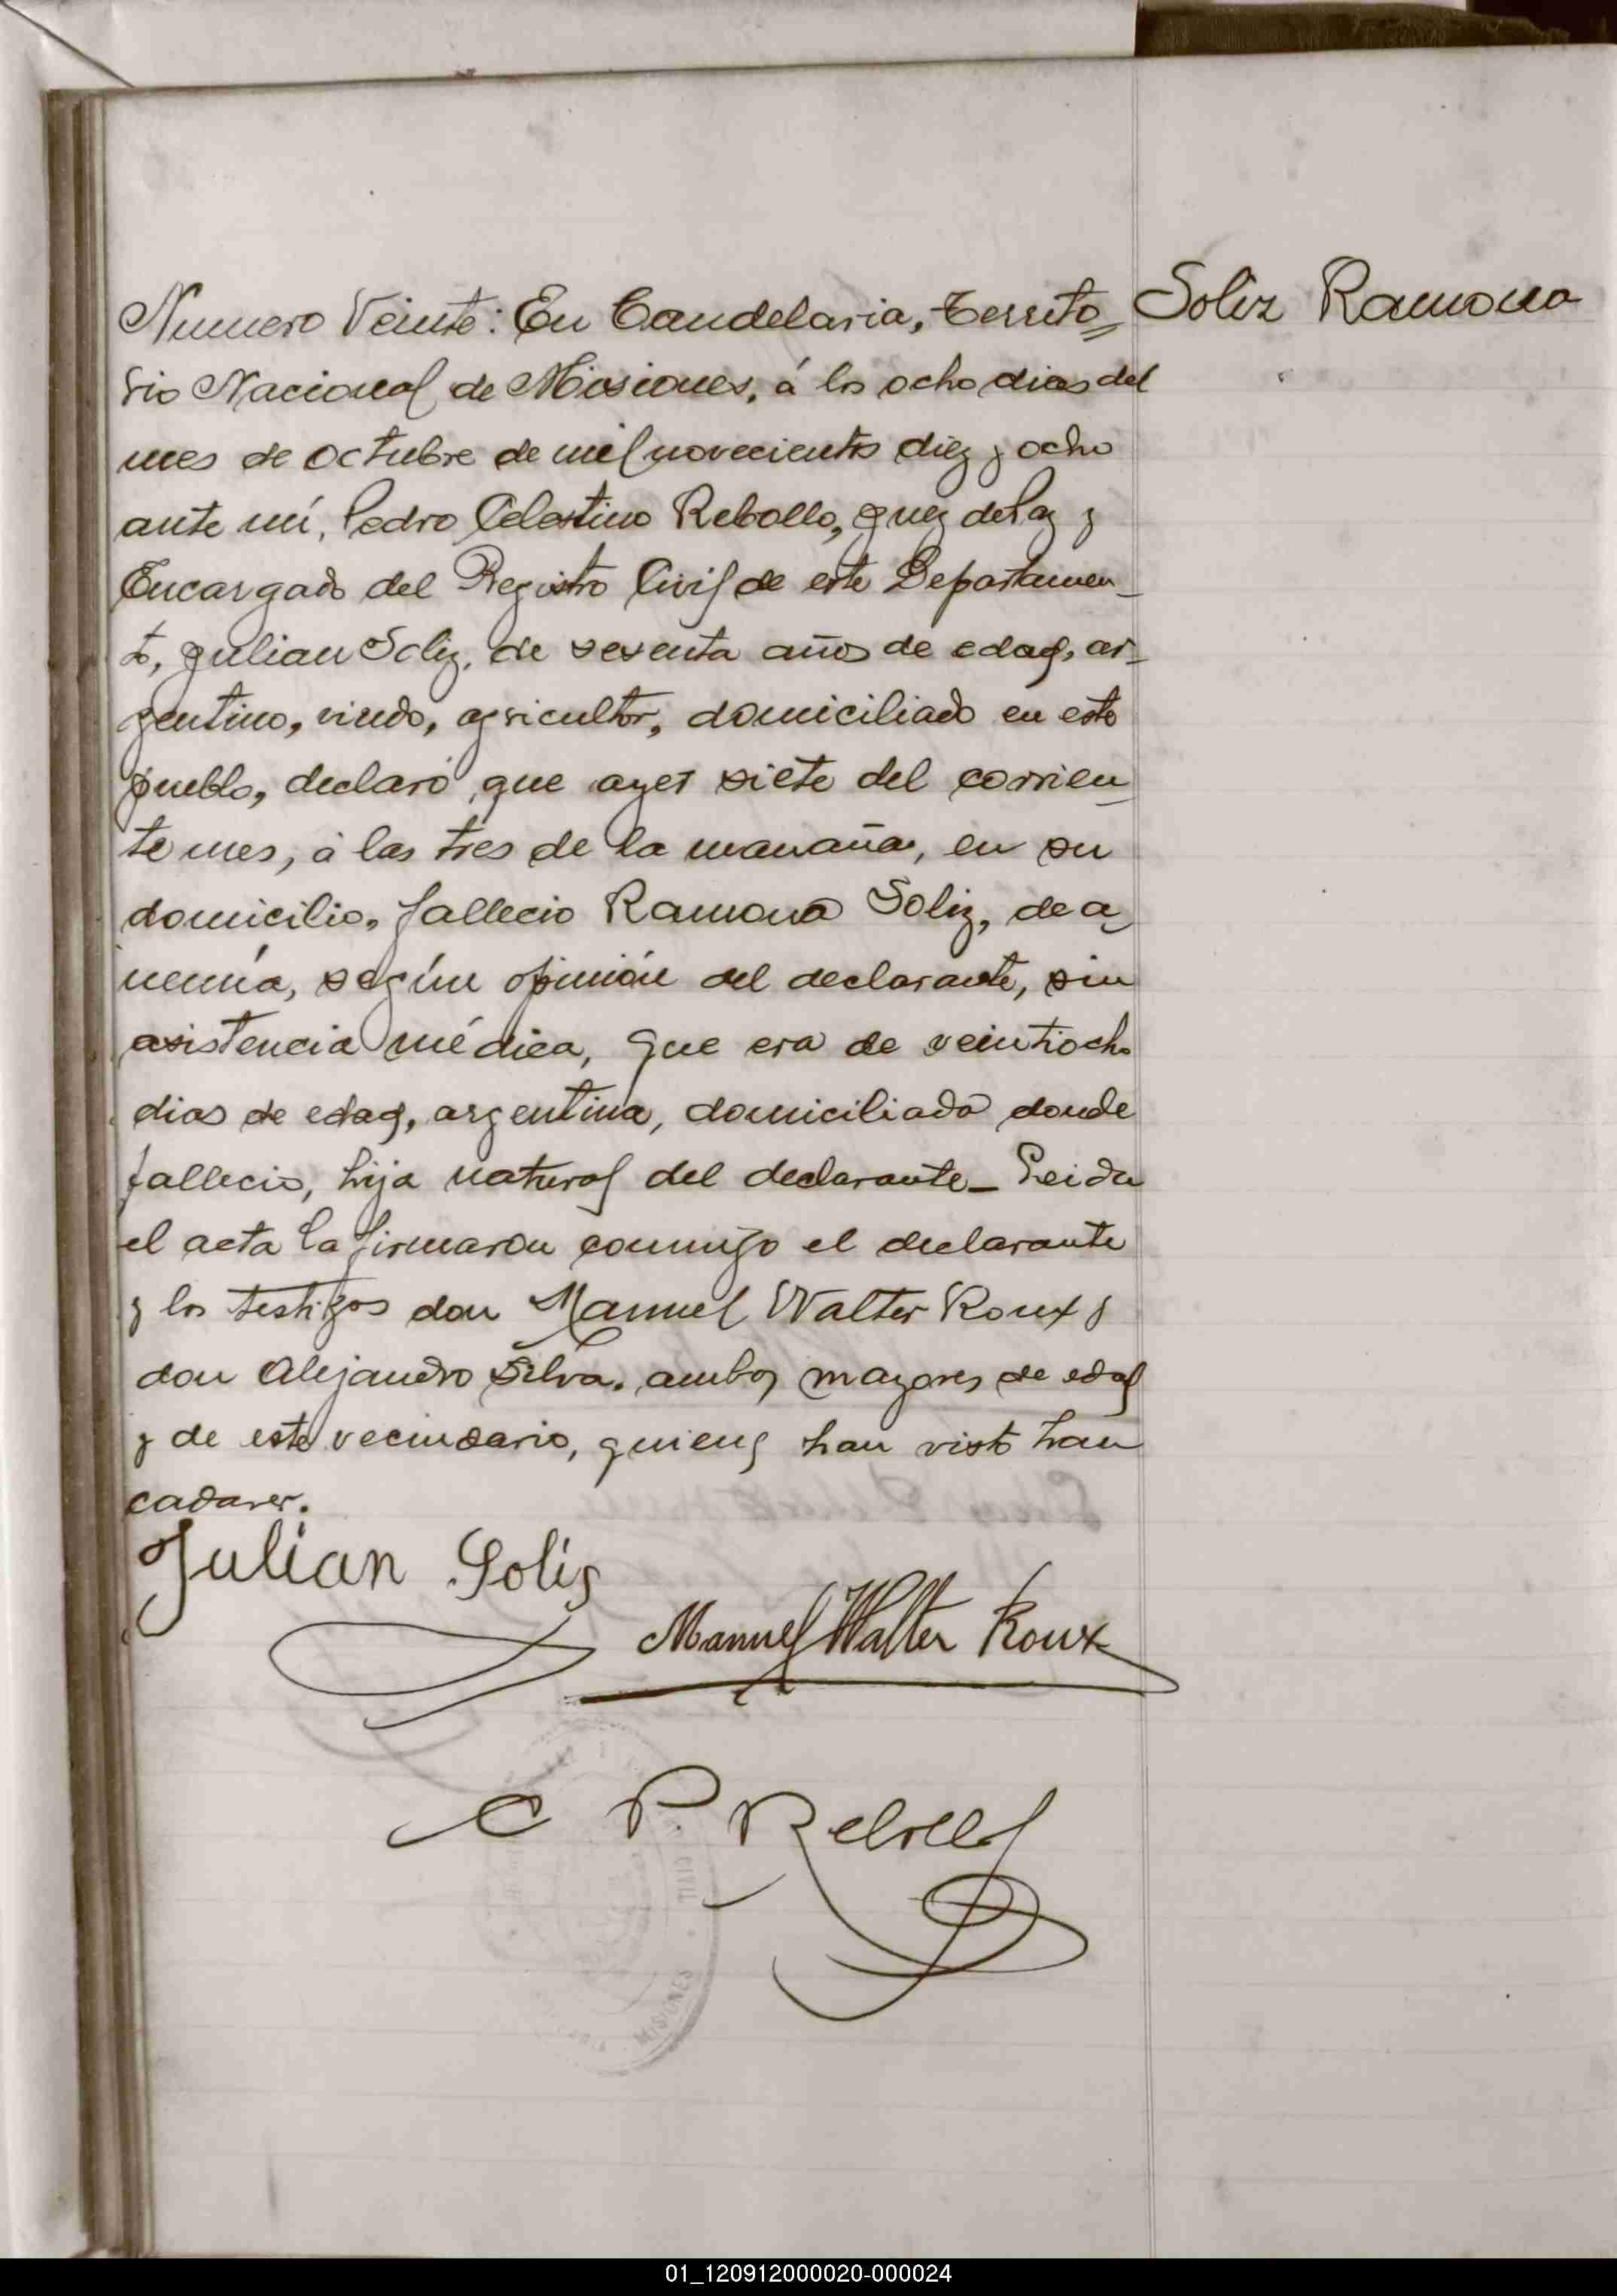 Numero Veinte: En Candelaria, Territo=
Soliz Ramona
rio Nacional de Misiones, á los ocho dias del
mes de octubre de mil novecientos diez y ocho
ante mí, Pedro Celestino Rebollo, Juez de Paz y
Encargado del Registro Civil de este Departamen_
to, Julian Soliz, de sesenta años de edad, ar_
gentino, viudo, agricultor, domiciliado en este
pueblo, declaró, que ayer siete del corrien_
te mes, á las tres de la manaña, en su
domicilio, fallecio Ramona Soliz, de a_
nemía, según opinión del declarante, sin
asistencia médica, que era de veintiocho
dias de edad, argentina, domiciliada donde
fallecio, hija natural del declarante_ Leida
el acta la firmaron conmigo el declarante
y los testigos don Manuel Walter Roux y
don Alejandro Silva. ambos mayores de edad
y de este vecindario, quienes han visto han
cadaver.
Julian Solis
Manuel Walter Roux
C P. Rebollo
CIVIL
MISIONES
01_120912000020-000024